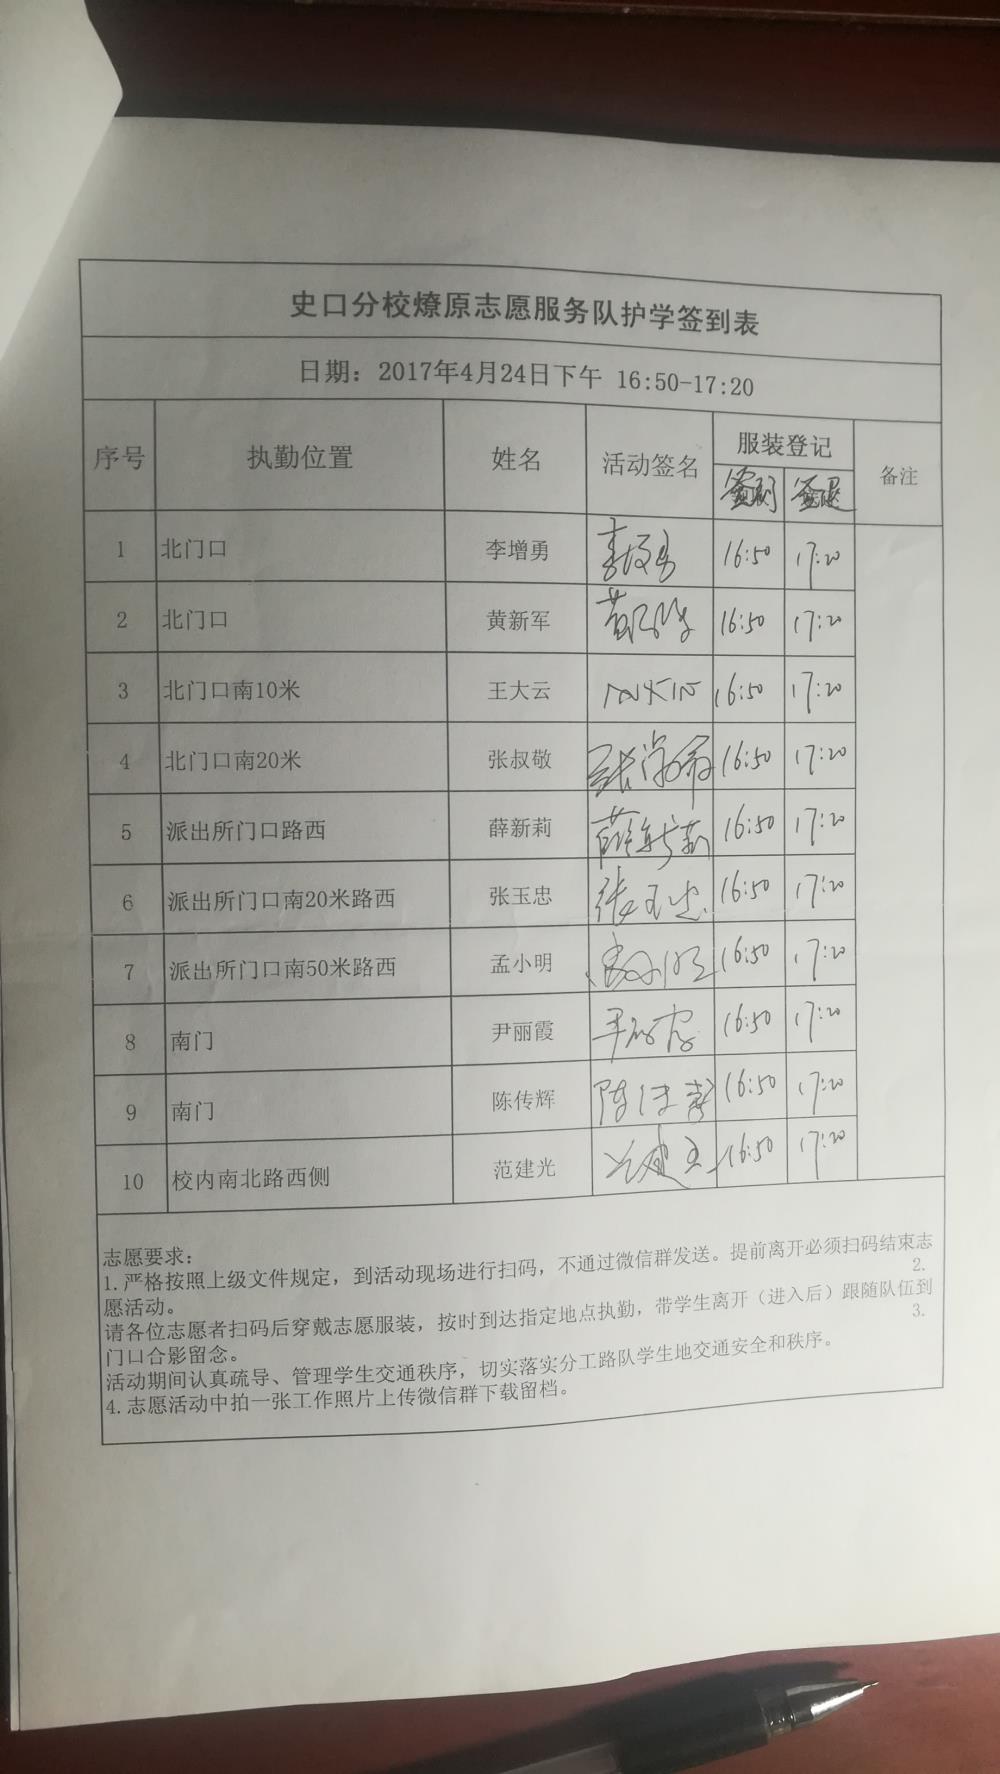 史口分校燎原志愿服务队护学签到表
日期：2017年4月24日下午 16:50-17:20
序号 执勤位置 姓名 活动签名 服装登记 备注
签到 签退
1 北门口 李增勇 李增勇 16:50 17:20
2 北门口 黄新军 16:50 17:20
3 北门口南10米 王大云 16:50 17:20
4 北门口南20米 张叔敬 16:50 17:20
5 派出所门口路西 薛新莉 薛新莉 16:50 17:20
6 派出所门口南20米路西 张玉忠 张玉忠 16:50 17:20
7 派出所门口南50米路西 孟小明 16:50 17:20
8 南门 尹丽霞 16:50 17:20
9 南门 陈传辉 16:50 17:20
10 校内南北路西侧 范建光 16:50 17:20
志愿要求：
1.严格按照上级文件规定，到活动现场进行扫码，不通过微信群发送。提前离开必须扫码结束志
愿活动。 2.
请各位志愿者扫码后穿戴志愿服装，按时到达指定地点执勤，带学生离开（进入后）跟随队伍到
门口合影留念。 3.
活动期间认真疏导、管理学生交通秩序，切实落实分工路队学生地交通安全和秩序。
4.志愿活动中拍一张工作照片上传微信群下载留档。